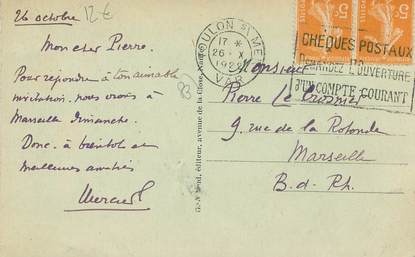 26 octobre
12€
Mon cher Pierre.
Pour répondre à ton aimable
invitation. nous irons à
Marseille Dimanche.
Donc. à bientôt et
meilleures amitiés
83
TOULON S/ MER
17 *
26 - X
1922
VAR
5c 5c
CHÈQUES POSTAUX
DEMANDEZ L'OUVERTURE
D'UN COMPTE COURANT
Monsieur
Pierre Le
9. rue de la Rotonde
Marseille
B. d. Rh.
éditeur, avenue de la